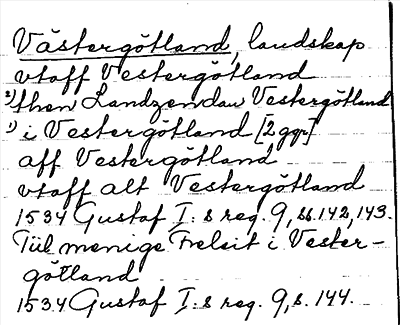 Västergötland, landskap
vtaff Vestergötland
2) then Landzendan Vestergötland
1) i Vestergötland [2 ggr]
aff Vestergötland
vtaff alt Vestergötland
1534 Gustaf I:s reg. 9, ss. 142, 143.
Tiil menige Frelsit i Vester-
götland
1534 Gustaf I:s reg. 9, s. 144.